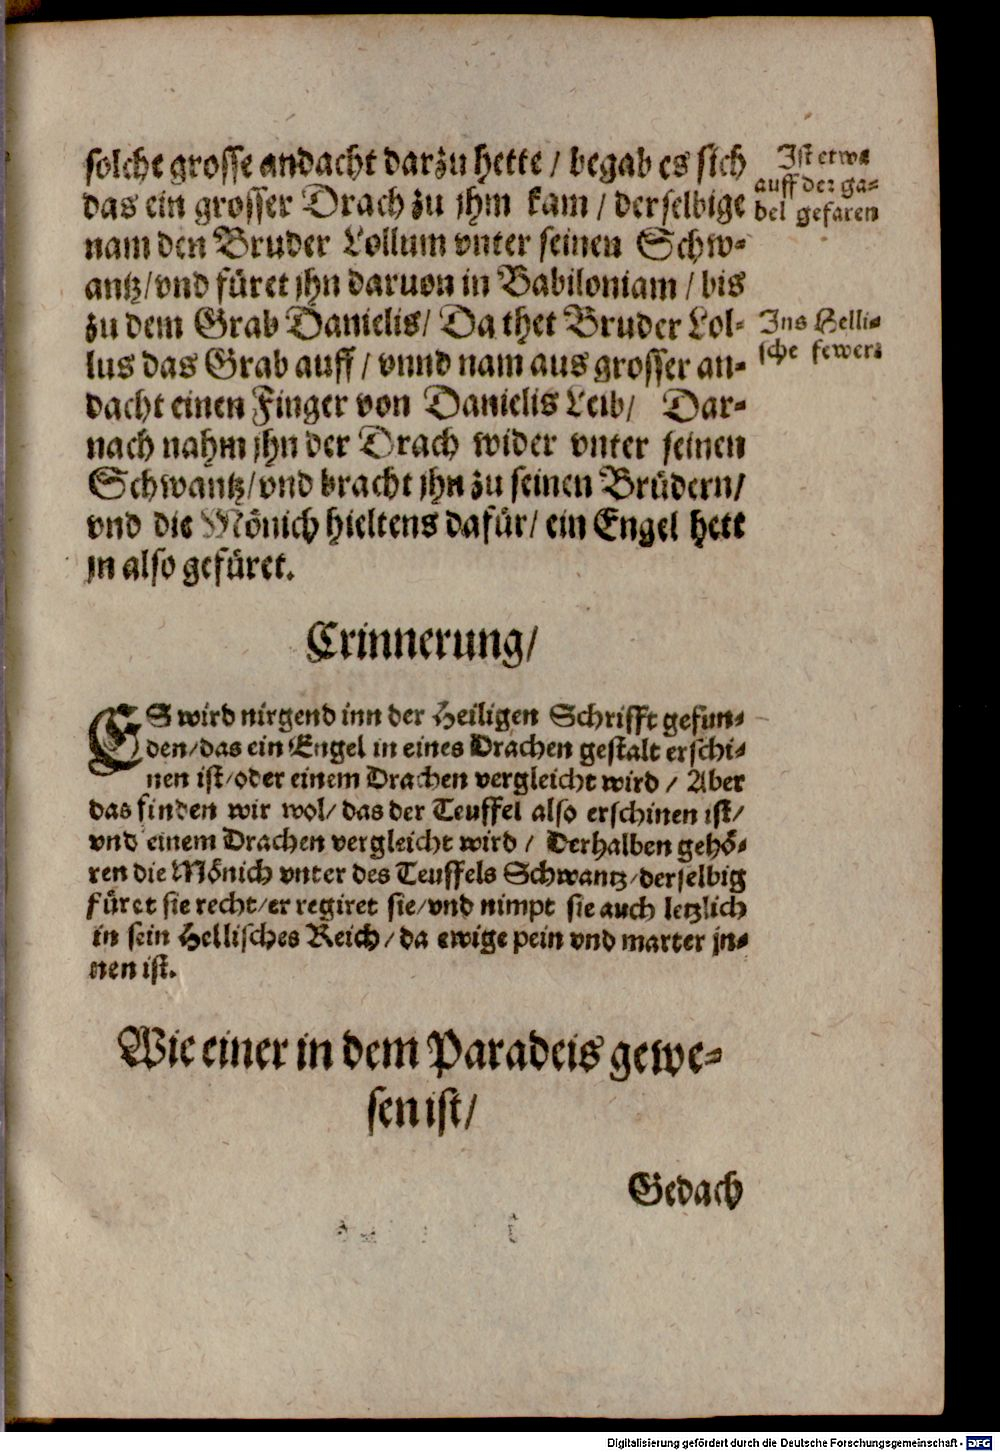 solche grosse andacht darzu hette / begab es sich
das ein grosser Drach zu jhm kam / derselbige
nam den Bruder Lollum vnter seinen Schw-
antz/vnd füret jhn daruon in Babiloniam / bis
zu dem Grab Danielis/ Da thet Bruder Lol-
lus das Grab auff / vnnd nam aus grosser an-
dacht einen Finger von Danielis Leib/ Dar-
nach nahm jhn der Drach wider vnter seinen
Schwantz/vnd bracht jhn zu seinen Brüdern/
vnd die Mönich hieltens dafür/ ein Engel hett
jn also gefüret.
Ist etwa
auff der ga-
bel gefaren
Ins Helli-
sche fewer.
Erinnerung/
ES wird nirgend inn der Heiligen Schrifft gefun-
den/das ein Engel in eines Drachen gestalt erschi-
nen ist/oder einem Drachen vergleicht wird / Aber
das finden wir wol/das der Teuffel also erschinen ist/
vnd einem Drachen vergleicht wird / Derhalben gehö-
ren die Mönich vnter des Teuffels Schwantz/derselbig
füret sie recht/er regiret sie/vnd nimpt sie auch letzlich
in sein Hellisches Reich/da ewige pein vnd marter jn-
nen ist.
Wie einer in dem Paradeis gewe-
sen ist/
Gedach
Digitalisierung gefördert durch die Deutsche Forschungsgemeinschaft - DFG